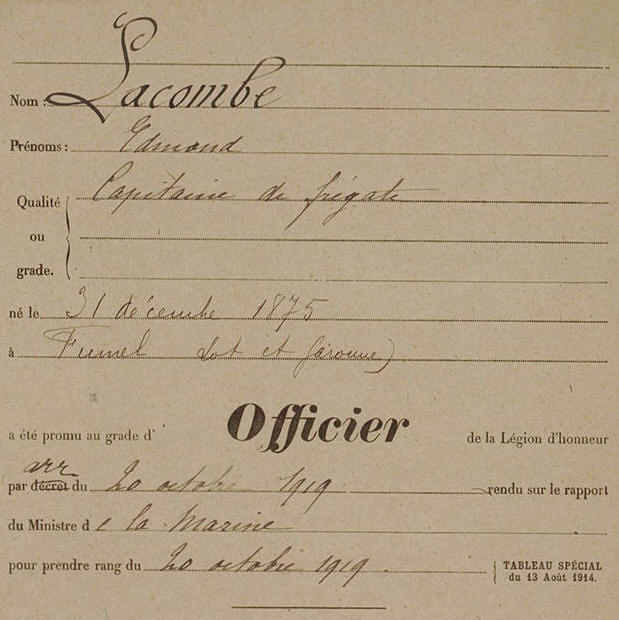 Nom : Lacombe
Prénoms : Edmond
Qualité ou grade. Capitaine de frégate
né le 31 décembre 1875
à Fumel Lot et Garonne)
a été promu au grade d' Officier de la Légion d'honneur
arr
par décret du 20 octobre 1919 rendu sur le rapport
du Ministre de la Marine
pour prendre rang du 20 octobre 1919. TABLEAU SPÉCIAL
du 13 Août 1914.